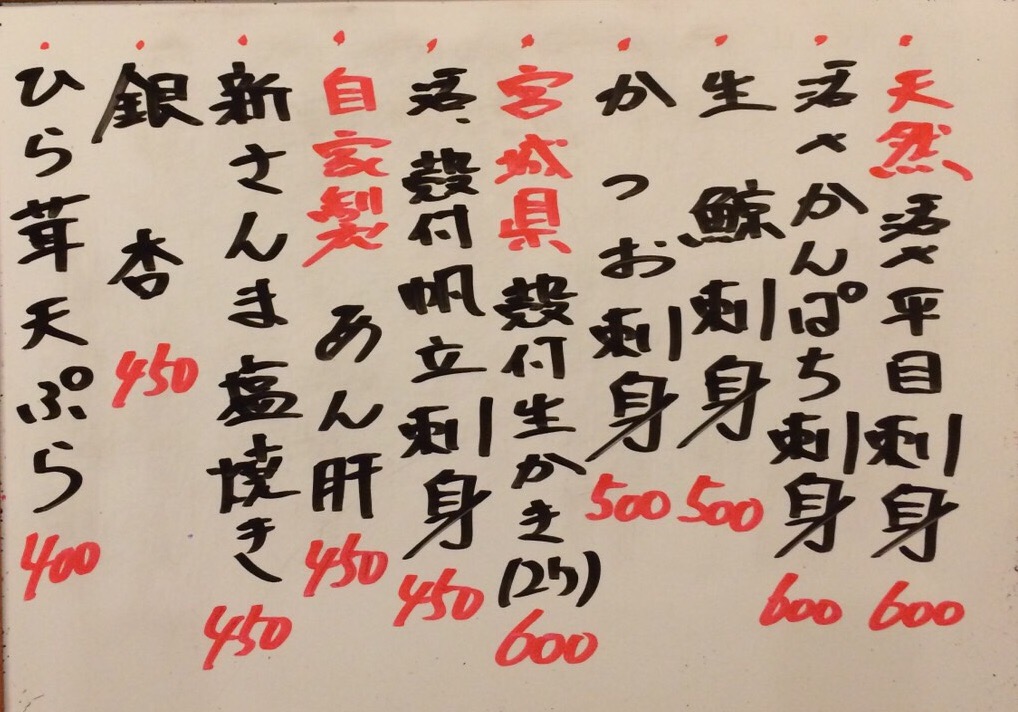 ・天然活〆平目刺身 600
・活〆かんぱち刺身 600
・生鯨刺身 500
・かつお刺身 500
・宮城県殻付生かき(2ケ) 600
・活、殻付帆立刺身 450
・自家製あん肝 450
・新さんま塩焼き 450
・銀杏 450
・ひら茸天ぷら 400